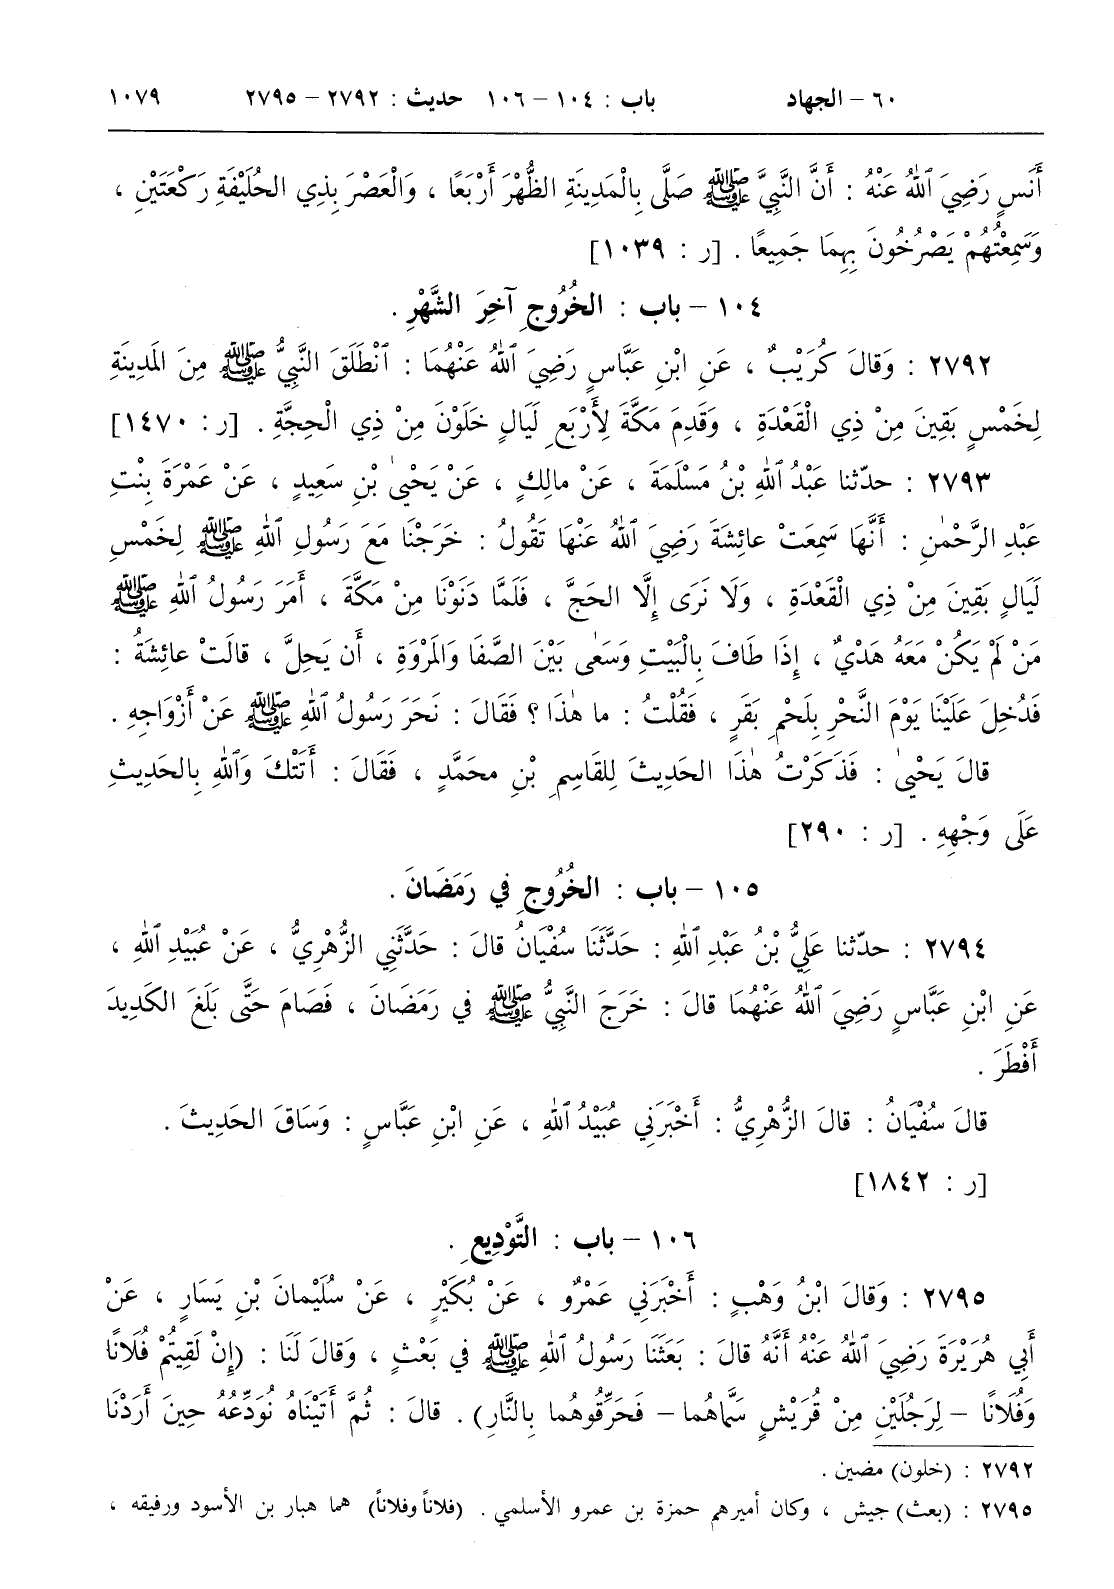 ٦٠ – الجهاد باب : ١٠٤ – ١٠٦ حديث : ٢٧٩٢ – ٢٧٩٥ ١٠٧٩
أَنَسٍ رَضِيَ ٱللهُ عَنْهُ : أَنَّ النَّبِيَّ ﷺ صَلَّى بِالْمَدِينَةِ الظُّهْرَ أَرْبَعًا ، وَالْعَصْرَ بِذِي الحُلَيْفَةِ رَكْعَتَيْنِ ،
وَسَمِعْتُهُمْ يَصْرُخُونَ بِهِمَا جَمِيعًا . [ر : ١٠٣٩]
١٠٤ – باب : الخُرُوجِ آخِرَ الشَّهْرِ .
٢٧٩٢ : وَقالَ كُرَيْبٌ ، عَنِ ابْنِ عَبَّاسٍ رَضِيَ ٱللهُ عَنْهُمَا : ٱنْطَلَقَ النَّبِيُّ ﷺ مِنَ المَدِينَةِ
لِخَمْسٍ بَقِينَ مِنْ ذِي الْقَعْدَةِ ، وَقَدِمَ مَكَّةَ لِأَرْبَعِ لَيَالٍ خَلَوْنَ مِنْ ذِي الْحِجَّةِ . [ر : ١٤٧٠]
٢٧٩٣ : حدّثنا عَبْدُ ٱللهِ بْنُ مَسْلَمَةَ ، عَنْ مالِكٍ ، عَنْ يَحْيٰى بْنِ سَعِيدٍ ، عَنْ عَمْرَةَ بِنْتِ
عَبْدِ الرَّحْمٰنِ : أَنَّهَا سَمِعَتْ عائِشَةَ رَضِيَ ٱللهُ عَنْهَا تَقُولُ : خَرَجْنَا مَعَ رَسُولِ ٱللهِ ﷺ لِخَمْسِ
لَيَالٍ بَقِينَ مِنْ ذِي الْقَعْدَةِ ، وَلَا نَرَى إِلَّا الحَجَّ ، فَلَمَّا دَنَوْنَا مِنْ مَكَّةَ ، أَمَرَ رَسُولُ ٱللهِ ﷺ
مَنْ لَمْ يَكُنْ مَعَهُ هَدْيٌ ، إِذَا طَافَ بِالْبَيْتِ وَسَعٰى بَيْنَ الصَّفَا وَالمَرْوَةِ ، أَن يَحِلَّ ، قالَتْ عائِشَةُ :
فَدُخِلَ عَلَيْنَا يَوْمَ النَّحْرِ بِلَحْمِ بَقَرٍ ، فَقُلْتُ : ما هٰذَا ؟ فَقَالَ : نَحَرَ رَسُولُ ٱللهِ ﷺ عَنْ أَزْوَاجِهِ .
قالَ يَحْيٰى : فَذَكَرْتُ هٰذَا الحَدِيثَ لِلقَاسِمِ بْنِ محَمَّدٍ ، فَقَالَ : أَتَتْكَ وَٱللهِ بِالحَدِيثِ
عَلَى وَجْهِهِ . [ر : ٢٩٠]
١٠٥ – باب : الخُرُوجِ في رَمَضَانَ .
٢٧٩٤ : حدّثنا عَلِيُّ بْنُ عَبْدِ ٱللهِ : حَدَّثَنَا سُفْيَانُ قالَ : حَدَّثَنِي الزُّهْرِيُّ ، عَنْ عُبَيْدِ ٱللهِ ،
عَنِ ابْنِ عَبَّاسٍ رَضِيَ ٱللهُ عَنْهُمَا قالَ : خَرَجَ النَّبِيُّ ﷺ في رَمَضَانَ ، فَصَامَ حَتَّى بَلَغَ الكَدِيدَ
أَفْطَرَ .
قالَ سُفْيَانُ : قالَ الزُّهْرِيُّ : أَخْبَرَنِي عُبَيْدُ ٱللهِ ، عَنِ ابْنِ عَبَّاسٍ : وَسَاقَ الحَدِيثَ .
[ر : ١٨٤٢]
١٠٦ – باب : التَّوْدِيعِ .
٢٧٩٥ : وَقالَ ابْنُ وَهْبٍ : أَخْبَرَنِي عَمْرٌو ، عَنْ بُكَيْرٍ ، عَنْ سُلَيْمانَ بْنِ يَسَارٍ ، عَنْ
أَبِي هُرَيْرَةَ رَضِيَ ٱللهُ عَنْهُ أَنَّهُ قالَ : بَعَثَنَا رَسُولُ ٱللهِ ﷺ في بَعْثٍ ، وَقالَ لَنَا : (إِنْ لَقِيتُمْ فُلَانًا
وَفُلَانًا – لِرَجُلَيْنِ مِنْ قُرَيْشٍ سَمَّاهُما – فَحَرِّقُوهُما بِالنَّارِ) . قالَ : ثُمَّ أَتَيْنَاهُ نُوَدِّعُهُ حِينَ أَرَدْنَا
٢٧٩٢ : (خلون) مضين .
٢٧٩٥ : (بعث) جيش ، وكان أميرهم حمزة بن عمرو الأسلمي . (فلاناً وفلاناً) هما هبار بن الأسود ورفيقه ،